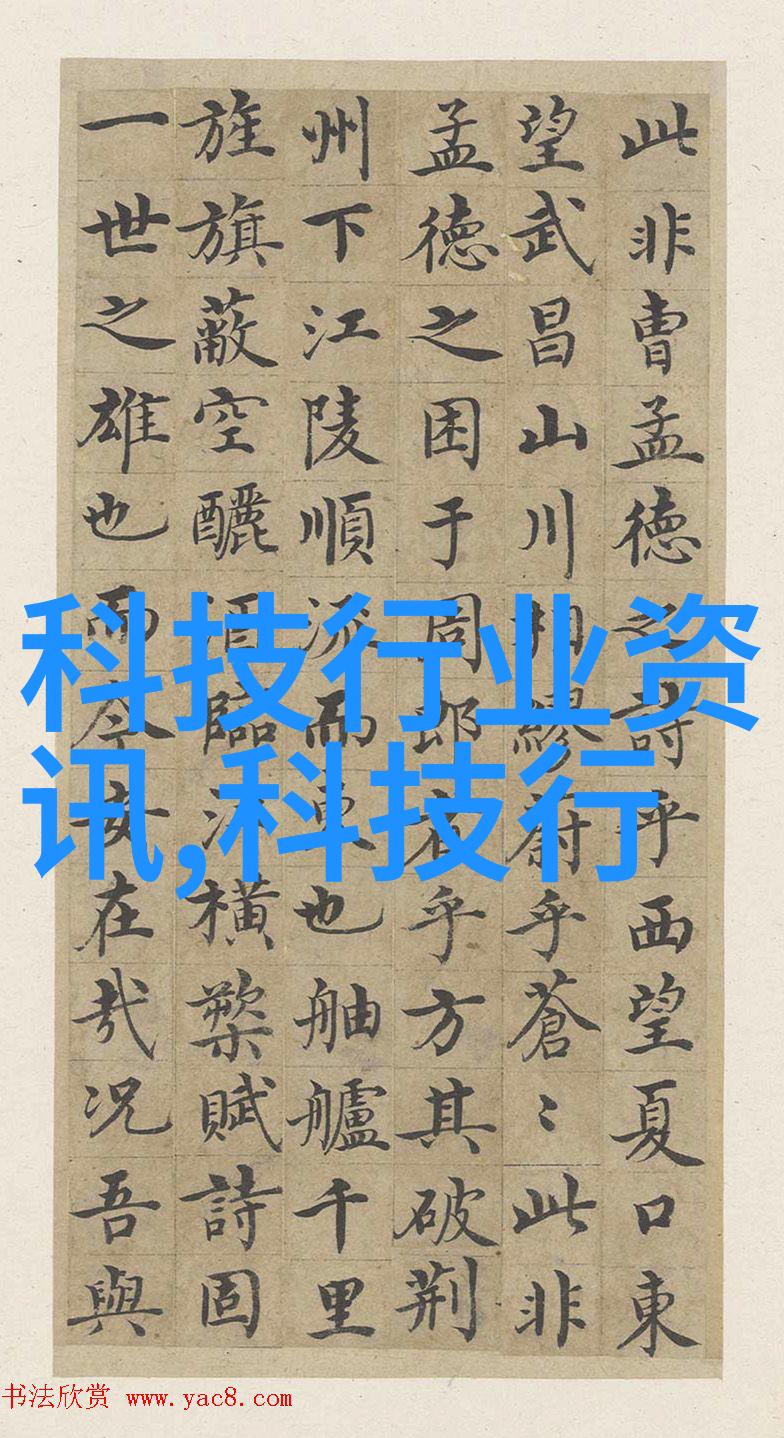 此非曹孟德之詩乎西望夏口東
望武昌山川相繆蔚乎蒼〻此非
孟德之困于周郎者乎方其破荆
州下江陵順流而東也舳艫千里
旌旗蔽空釃酒臨江横槊賦詩固
一世之雄也而今安在哉况吾與
科技行业资
讯,科技行
书法欣赏 www.yac8.com